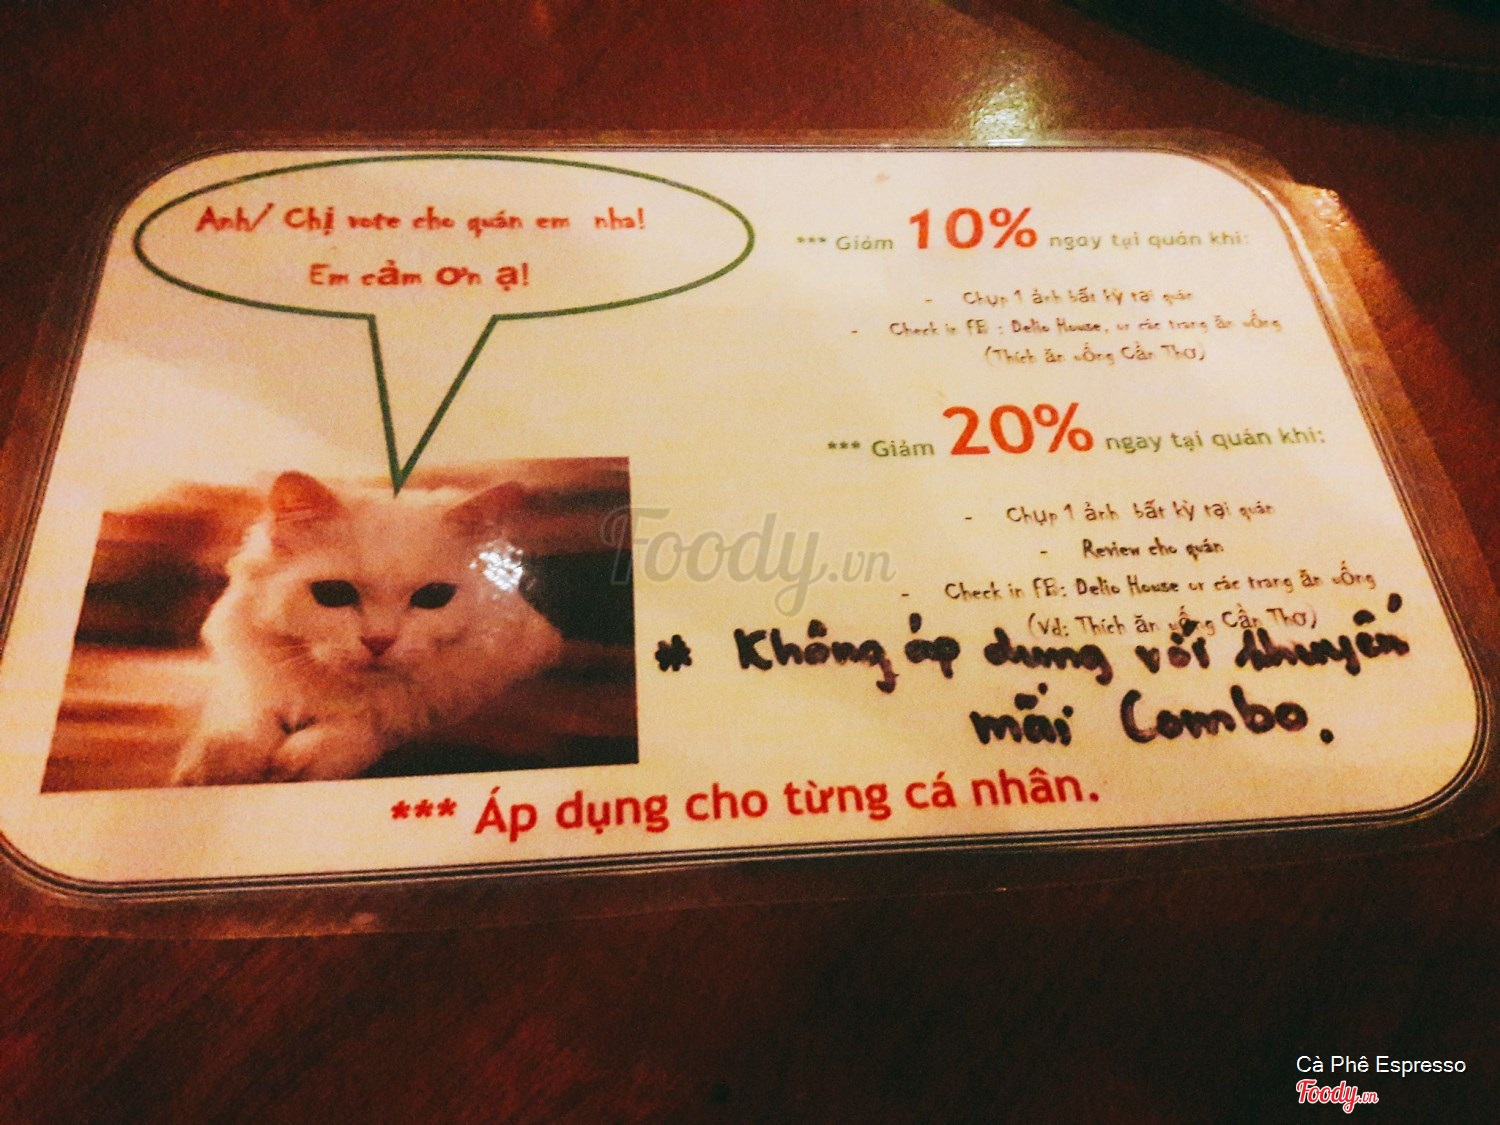 Anh/ Chị vote cho quán em nha!
Em cảm ơn ạ!
*** Giảm 10% ngay tại quán khi:
- Chụp 1 ảnh bất kỳ tại quán
- Check in FB : Delio House, or các trang ăn uống
(Thích ăn uống Cần Thơ)
*** Giảm 20% ngay tại quán khi:
- Chụp 1 ảnh bất kỳ tại quán
- Review cho quán
- Check in FB: Delio House or các trang ăn uống
(Vd: Thích ăn uống Cần Thơ)
# Không áp dụng với khuyến
mãi Combo.
*** Áp dụng cho từng cá nhân.
Foody.vn
Cà Phê Espresso
Foody.vn